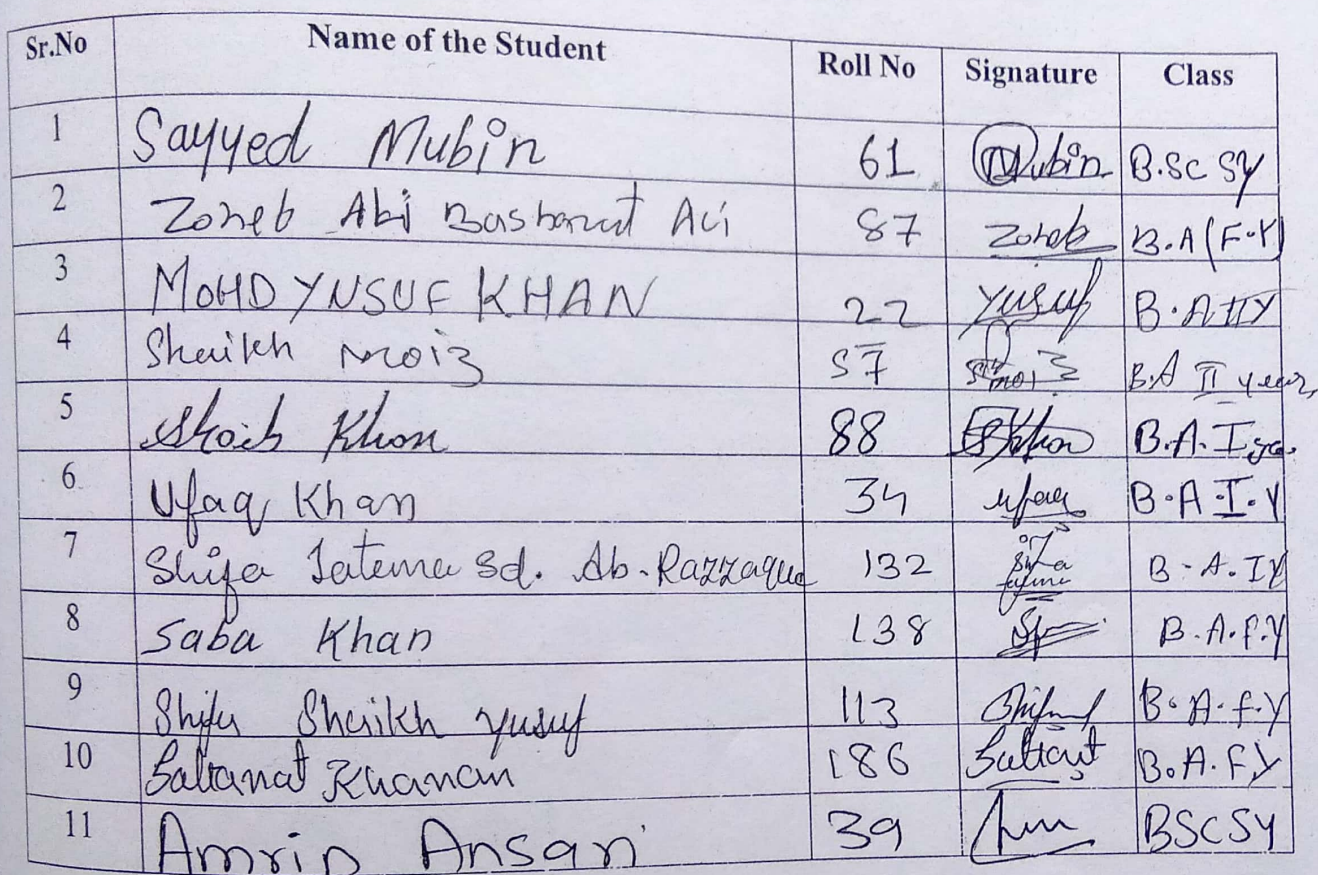 Sr.No Name of the Student Roll No Signature Class
1 Sayyed Mubin 61 Mubin B.Sc SY
2 Zoheb Ali Basharat Ali 87 Zoheb B.A (F.Y)
3 MOHD YUSUF KHAN 22 Yusuf B.A IIY
4 Shaikh Moiz 57 B.A II year
5 Shoaib Khan 88 B.A. I ye.
6 Ufaq Khan 34 Ufaq B.A I.Y
7 Shifa Fatema Sd. Ab. Razzaque 132 B.A. IY
8 Saba Khan 138 B.A.F.Y
9 Shifa Shaikh Yusuf 113 B.A.f.Y
10 Saltanat Khanam 186 B.A.F.Y
11 Amrin Ansari 39 BSC SY